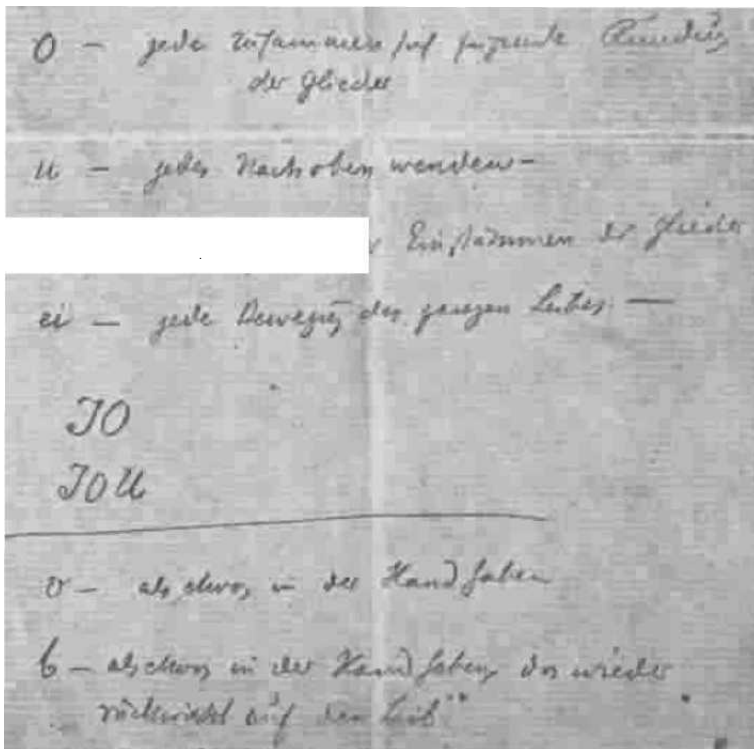 O – jede zusammenschließende Rundung
der Glieder
u – jedes Nach oben wenden –
Einstämmen der Glieder
ei – jede Bewegung des ganzen Leibes. —
IO
IOU
v – als etwas in der Hand haben
b – als etwas in der Hand haben, das wieder
rückwirkt auf den Leib